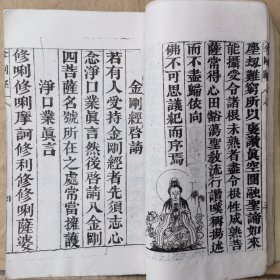 塵却難窮所以襃讚真空圓融聖諦如來
能攝受令諸根未熟者盡令根性成熟菩
薩常得心田豁蕩聖教流行讚嘆揚述
而不盡歸依向
佛不可思議紀而序焉
金剛經啓請
若有人受持金剛經者先須志心
念淨口業眞言然後啓請八金剛
四菩薩名號所在之處常當擁護
淨口業眞言
修唎修唎摩訶修唎修修唎薩婆
金剛經
四